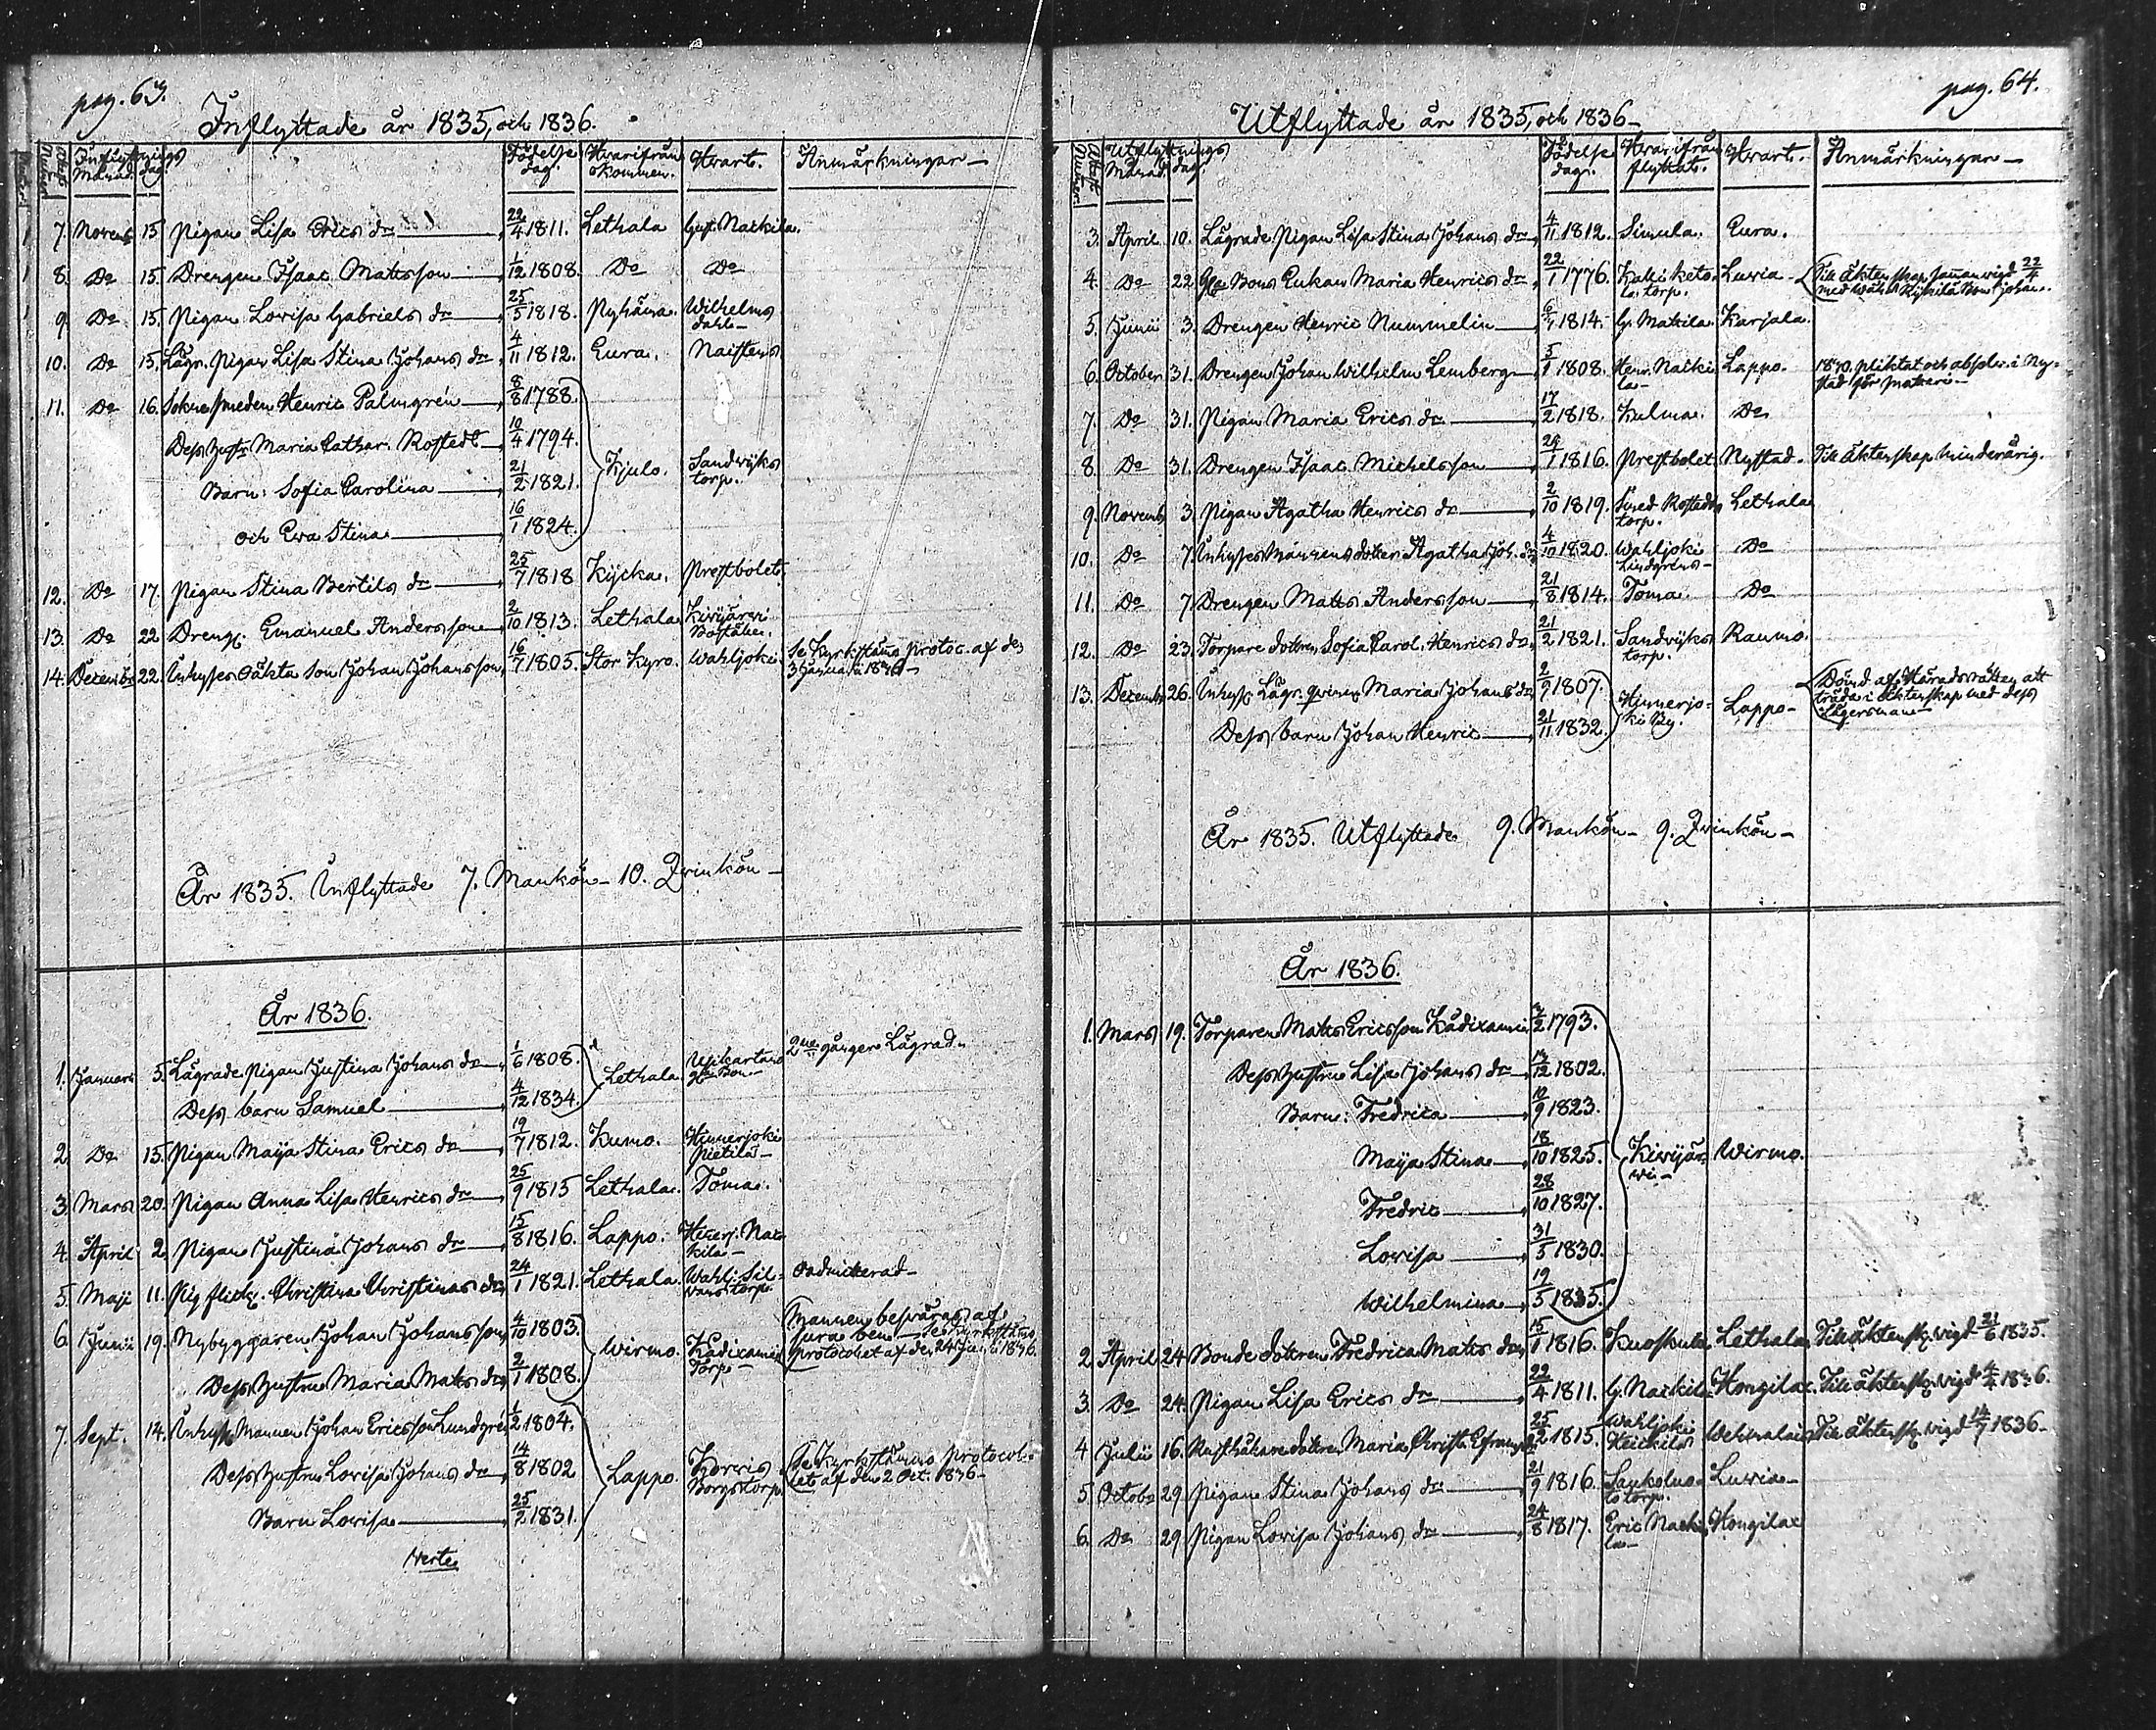 pag. 63.
Inflyttade år 1835, och 1836.
Inflyttnings Månad. dag. Födelse dag. Hvarifrån kommen. Hvart. Anmärkningar
7. Novemb 15 Pigan Lisa Erics dr 22/4 1811. Lethala Gust. Naikila.
8. Do 15. Drengen Isaac Mattsson 1/12 1808. Do Do
9. Do 15. Pigan Lovisa Gabriels dr 25/5 1818. Pyhäma. Wilhelms
dahl
10. Do 15. Lägr. Pigan Lisa Stina Johans dr 4/11 1812. Eura. Naistens
11. Do 16. Sokne smeden Henric Palmgrén 8/8 1788.
Dess hustr Maria Cathar. Rostedt 10/4 1794.
Barn: Sofia Carolina 21/2 1821. Kjulo. Sandwijks
torp.
och Ewa Stina 16/1 1824.
12. Do 17. Pigan Stina Bertils dr 25/7 1818 Kijcka. Prestbolet.
13. Do 22 Dreng. Emanuel Andersson 2/10 1813. Lethala Kiwijärvi
Boställe.
14. December 22. Inhyses oäkta son Johan Johansson 16/7 1805. Stor Kyro. Wahljoki. Se Kyrkstäms protoc. af de
3 Januarii 1836
År 1835. Inflyttade 7. Mankön 10. Qvinkön
År 1836.
1. Januari 5. Lägrade Pigan Justina Johans dr 1/6 1808. Lethala 2ne gånger Lägrad
Dess barn Samuel 4/12 1834.
2 Do 15. Pigan Maija Stina Erics dr 19/7 1812. Kumo. Hinnerjoki
Pietilä
3. Mars 20. Pigan Anna Lisa Henrics dr 25/9 1815 Lethala. Toma.
4. April 2. Pigan Justina Johans dr 15/8 1816. Lappo.
5. Maji 11. Pig flick. Christina Christinas dr 24/1 1821. Lethala. Wahlj. Sil-
vans torp. Oadmitterad
6. Junii 19. Nybyggaren Johan Johansson 4/10 1803. Wirmo. Kadixamis
Torp Mannen besväras af
sura ben se Kyrkstäms
protocollet af den 24 Junii 1836.
Dess hustru Maria Mats dr 2/1 1808.
7. Sept. 14. Inhyses Mannen Johan Ericsson Lundgrén 1/2 1804.
Dess hustru Lovisa Johans dr 14/8 1802 Lappo. Korvis
Borgs torp. Se Kyrkstämmo protocol-
let af den 2 Oct. 1836
Barn Lovisa 25/2 1831.
Verte
pag. 64.
Utflyttade år 1835, och 1836
Utflyttnings Månad. dag. Födelse dag. Hvarifrån flyttat. Hvart. Anmärkningar
3. April 10. Lägrade Pigan Lisa Stina Johans dr 4/11 1812. Simula. Eura.
4. Do 22 Gla Bons Enkan Maria Henrics dr 22/1 1776. Kallikets
torp. Luvia Till äktenskap samman vigd 22/4
5. Junii 3. Drengen Henric Nummelin 6/7 1814. G. Matkila Karjala.
6. October 31. Drengen Johan Wilhelm Lemberg 5/1 1808. Henr. Naiki
la Lappo. 1830. pliktat och absolv. i Ny-
stad för snatteri
7. Do 31. Pigan Maria Erics dr 17/2 1818. Kulma. Do
8. Do 31. Drengen Isaac Michelsson 29/1 1816. Prestbolet Nystad. Till äktenskap minderårig.
9. Novemb 3. Pigan Agatha Henrics dr 2/10 1819. Smed Rostedts
torp. Lethala
10. Do 7. Inhyses Mannens dotter Agatha Joh. dr 4/10 1820. Wahljoki
Lindgrens Do
11. Do 7. Drengen Matts Andersson 21/8 1814. Toma. Do
12. Do 23. Torpare dottren Sofia Carol. Henrics dr 21/2 1821. Sandwijks
torp. Raumo.
13. December 26. Inhyses Lägr. qvinnan Maria Johans dr 2/9 1807. Hinnerjo-
ki By. Lappo Dömd af Häradsrätten att
träda i äktenskap med dess
Lägersman
Dess barn Johan Henric 21/11 1832.
År 1835. Utflyttade 9. Mankön 9. Qvinkön
År 1836.
1. Mars 19. Torparen Matts Ericsson Kadixamis 2/2 1793.
Dess hustru Lisa Johans dr 13/12 1802.
Barn: Fredrica 10/9 1823.
Maija Stina 18/10 1825. Kiwijär-
wi Wirmo.
Fredric 28/10 1827.
Lovisa 31/5 1830.
Wilhelmina 19/5 1835.
2 April 24 Bonde dottren Fredrica Matts dr 15/1 1816. Kuoskuta Lethala Till äktensk. vigd 21/6 1835.
3. Do 24. Pigan Lisa Erics dr 22/4 1811. G. Naikila Hongila. Till äktensk. vigd 4/4 1836.
4 Julii 16. Rusthållare dottren Maria Christ. 25/2 1815. Wahljoki
Heikilä Wehmalais Till äktensk. vigd 14/7 1836
5 Octob. 29 Pigan Stina Johans dr 21/9 1816. Luvia
6. Do 29 Pigan Lovisa Johans dr 24/8 1817. Eric Naiki
la Hongila